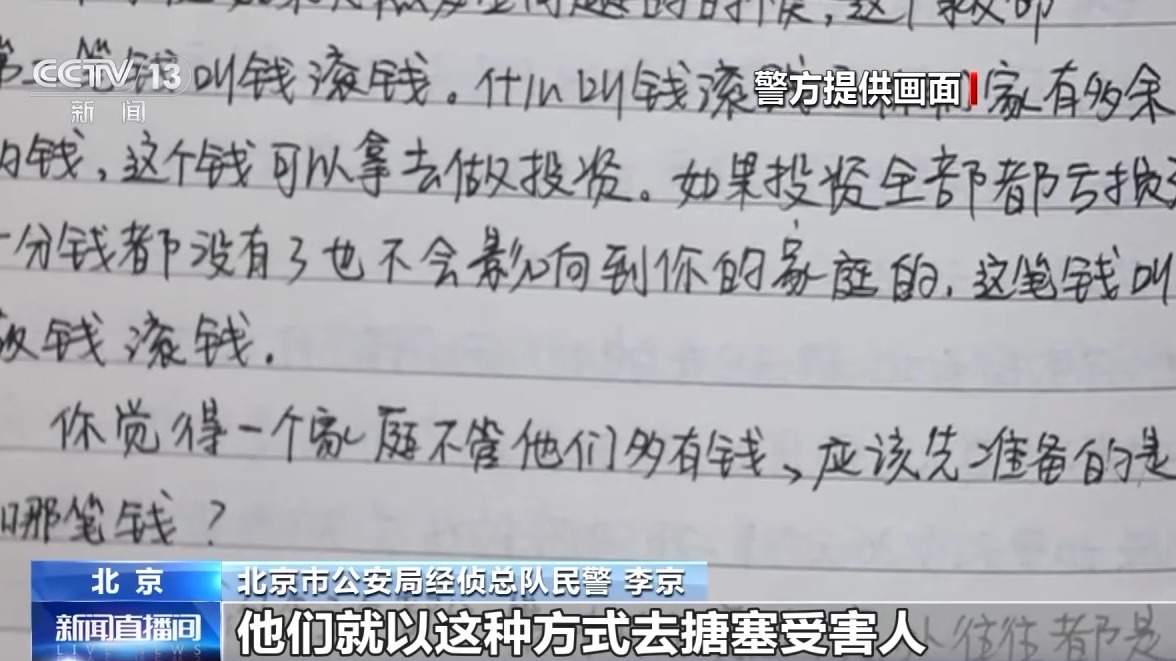 CCTV 13
新闻
警方提供画面
笔钱叫钱滚钱。什么叫钱滚 家有多余
的钱,这个钱可以拿去做投资。如果投资全部都亏损
一分钱都没有了也不会影响到你的家庭的,这笔钱叫
做钱滚钱.
你觉得一个家庭不管他们多有钱、应该先准备的是
哪笔钱?
往往都是
北京
北京市公安局经侦总队民警 李京
新闻直播间
LIVE NEWS
他们就以这种方式去搪塞受害人